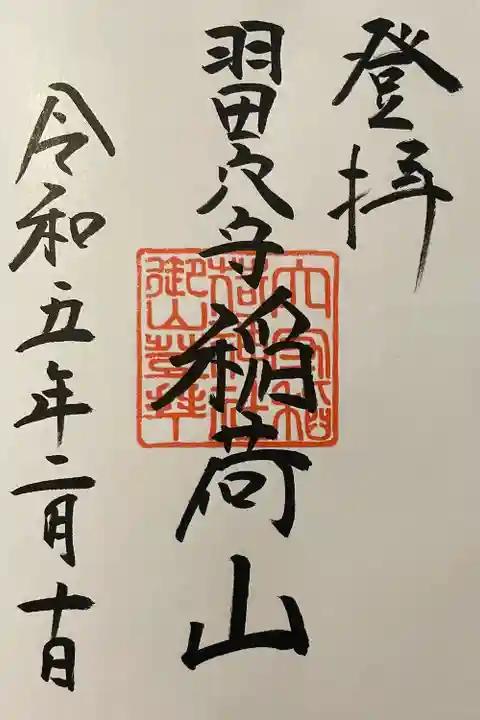 登拝
羽田穴守稲荷山
令和五年二月十日
穴守稲
荷神社
御山登拝